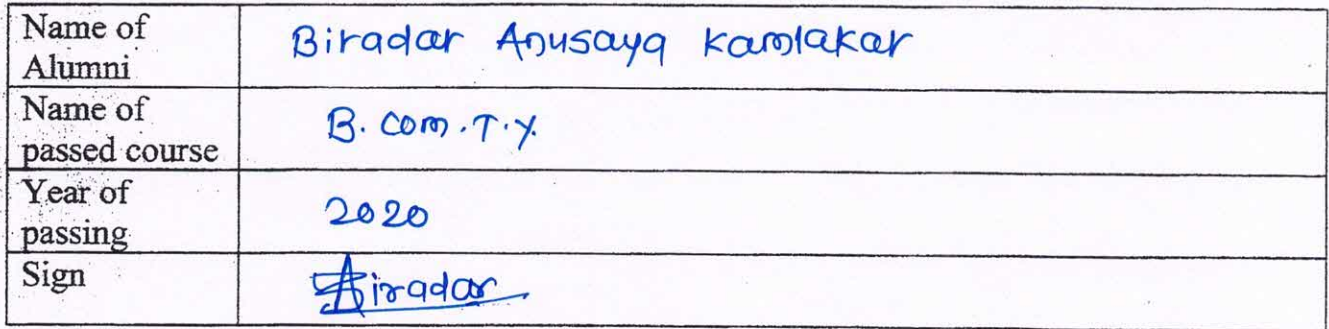 Name of
Alumni
Biradar Anusaya Kamlakar
Name of
passed course
B. Com. T.Y.
Year of
passing
2020
Sign
Biradar